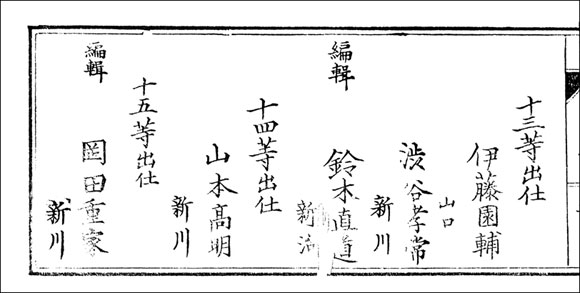 十三等出仕
伊藤園輔
山口
渋谷孝常
新川
編輯 鈴木直道
十四等出仕
山本髙明
新川
十五等出仕
編輯 岡田重家
新川